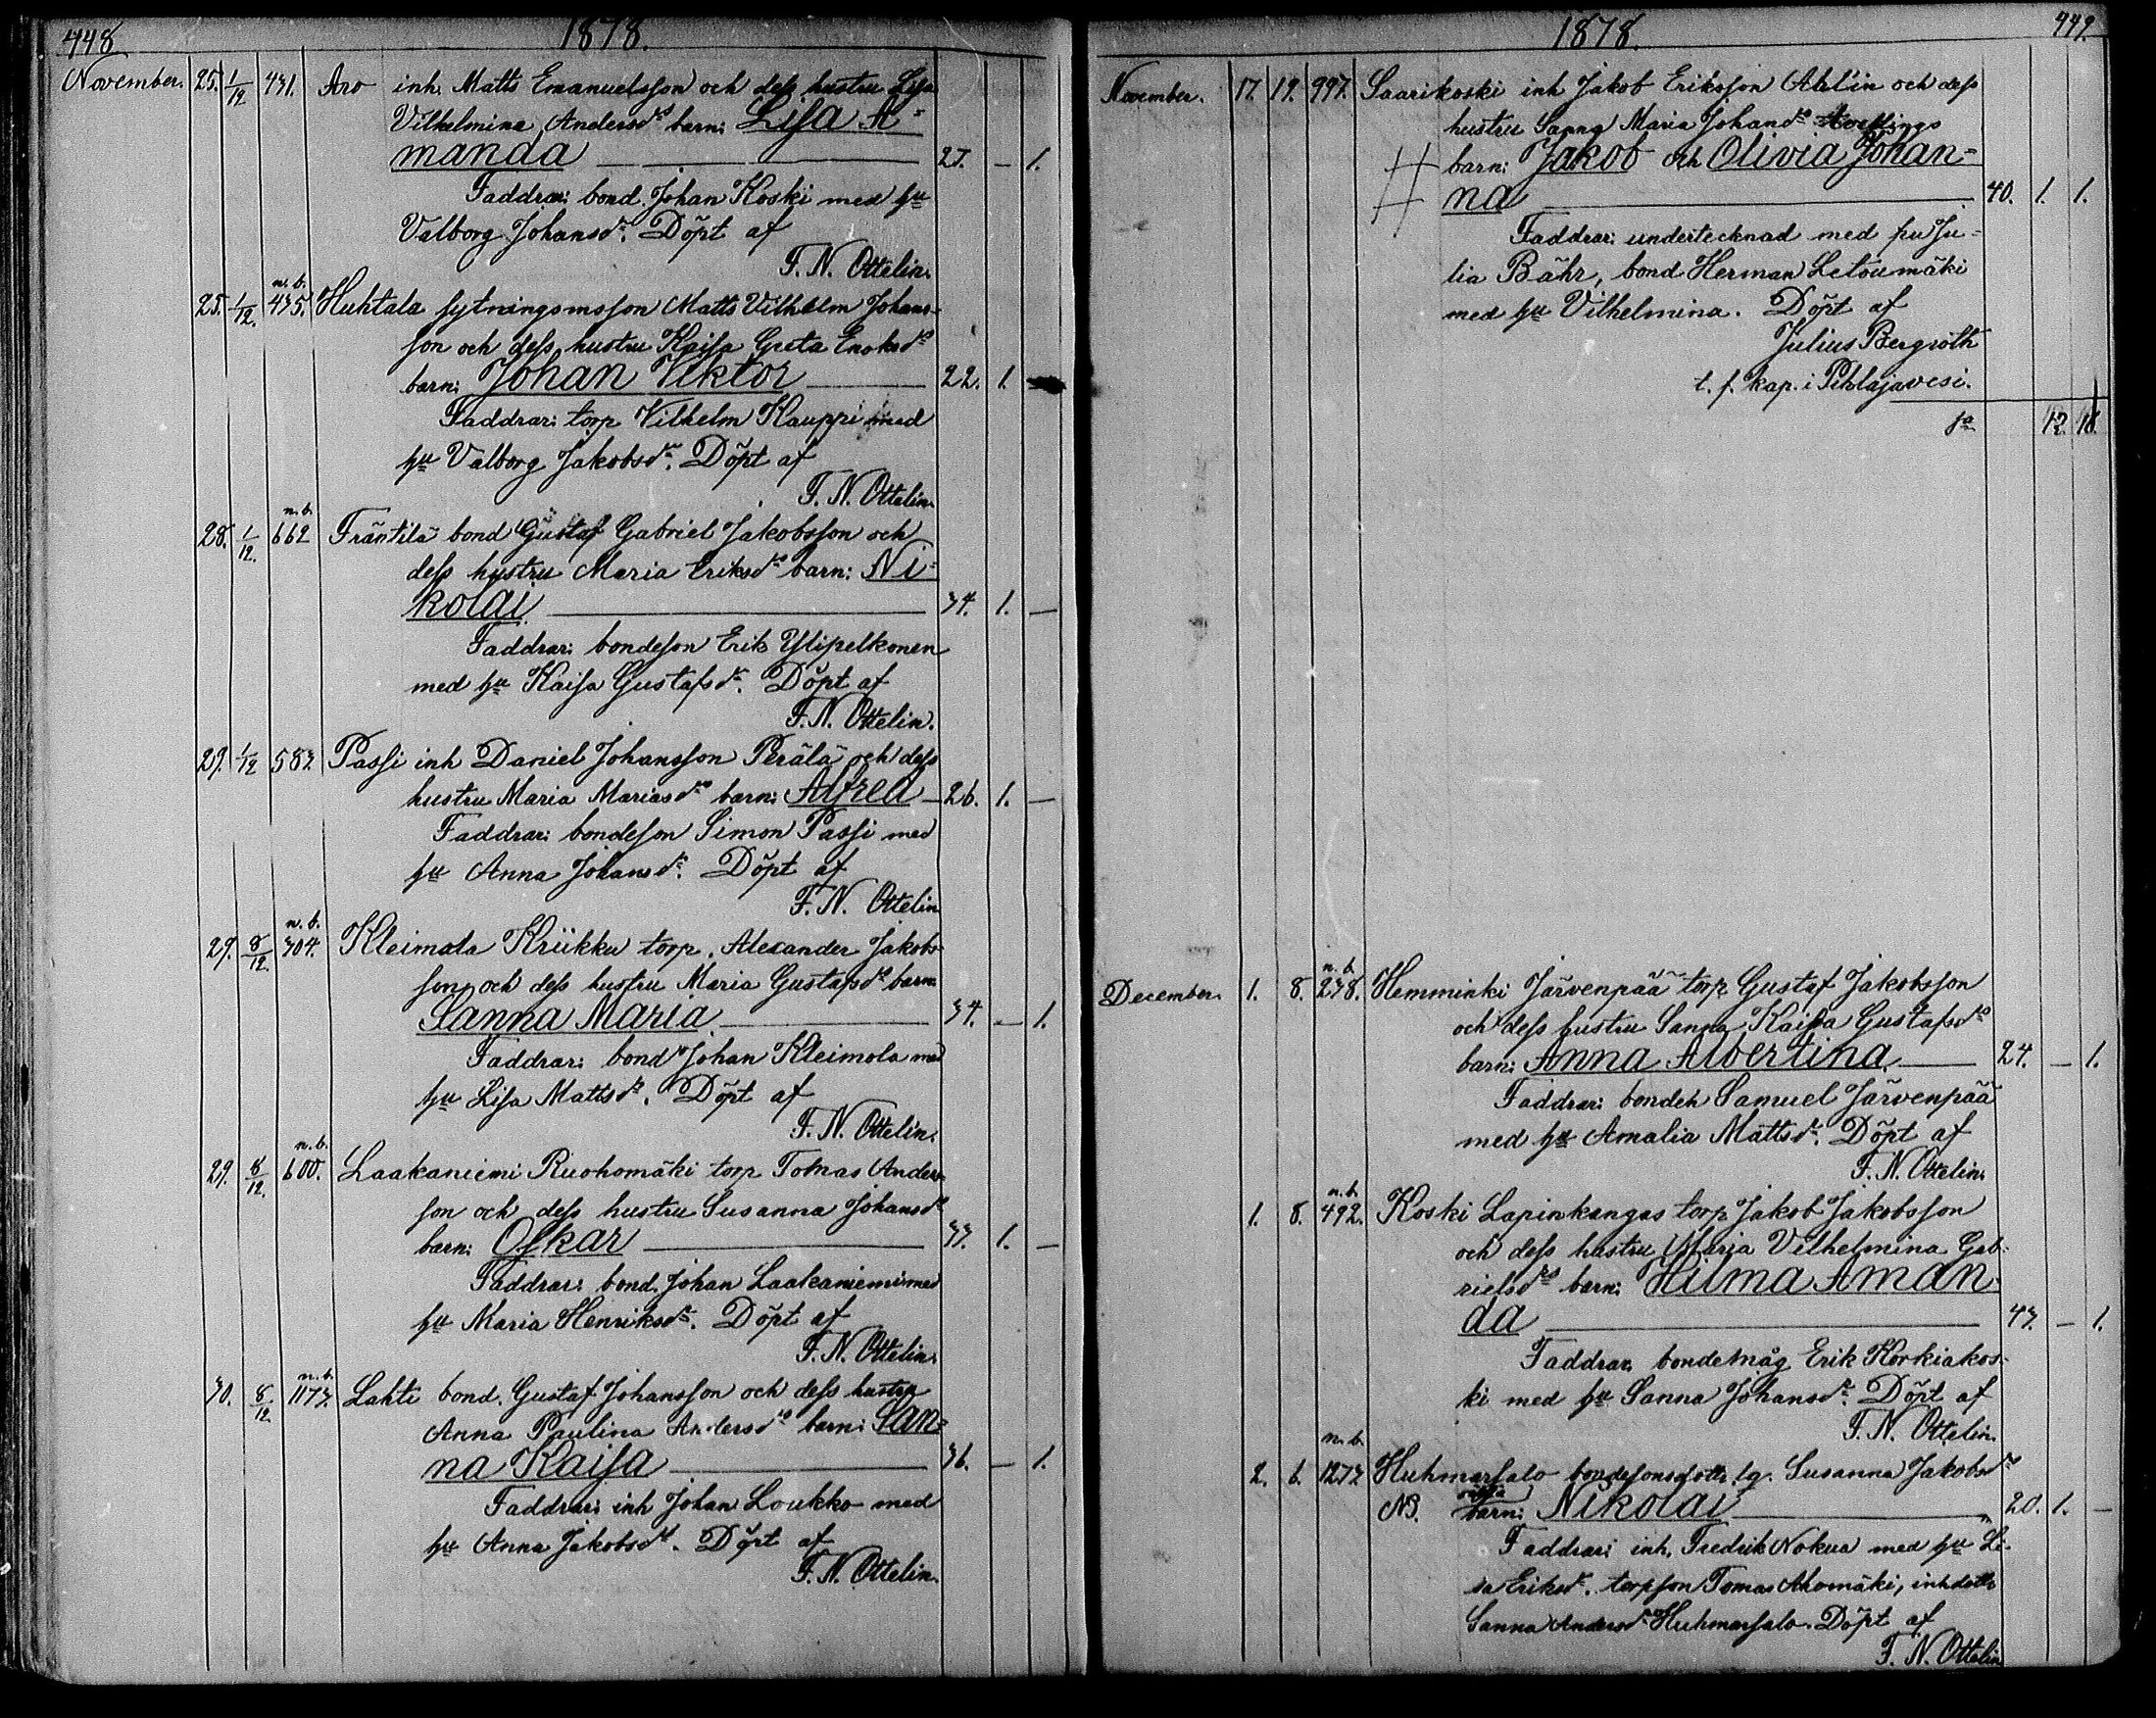 448 1878.
November. 25. 1/12 431. Aro inh. Matts Emanuelsson och dess hustru Lisa
Vilhelmina Andersdrs barn: Lisa A=
manda 27. — 1.
Faddrar: bond. Johan Koski med hu
Valborg Johansdr. Döpt af
F. N. Ottelin.
n. b.
25. 1/12. 435. Huhtala sytningsmsson Matts Vilhelm Johans-
son och dess hustru Kaisa Greta Enoksdrs
barn: Johan Viktor 22. 1. —
Faddrar: torp Vilhelm Kauppi med
hu Valborg Jakobsdr. Döpt af
F. N. Ottelin.
n. b.
28. 1/12. 662 Fräntilä bond Gustaf Gabriel Jakobsson och
dess hustru Maria Eriksdrs barn: Ni=
kolai 34. 1. —
Faddrar: bondeson Erik Ylipelkonen
med hu Kaisa Gustafsdr. Döpt af
F. N. Ottelin.
29. 1/12 583. Passi inh Daniel Johansson Perälä och dess
hustru Maria Mariasdrs barn: Alfred — 26. 1. —
Faddrar: bondeson Simon Passi med
hu Anna Johansdr. Döpt af
F. N. Ottelin
n. b.
29. 8/12. 304. Kleimola Kriikku torp. Alexander Jakobs-
son och dess hustru Maria Gustafsdrs barn
Sanna Maria. 34. — 1.
Faddrar: bond Johan Kleimola med
hu Lisa Mattsdr. Döpt af
F. N. Ottelin.
n. b.
29. 8/12. 600. Laakaniemi Ruohomäki torp Tomas Anders-
son och dess hustru Susanna Johansdrs
barn: Oskar 33. 1. —
Faddrar: bond. Johan Laakaniemi med
hu Maria Henriksdr. Döpt af
F. N. Ottelin.
n. b.
30. 8/12 1173. Lahti bond. Gustaf Johansson och dess hustru
Anna Paulina Andersdrs barn: San=
na Kaisa 36. — 1.
Faddrar: inh Johan Loukko med
hu Anna Jakobsdr. Döpt af
F. N. Ottelin.
1878. 449.
November. 17. 19. 997. Saarikoski inh Jakob Eriksson Ahlin och dess
hustru Sanna Maria Johansdrs tvillings
barn: Jakob och Olivia Johan=
na 40. 1. 1.
Faddrar: undertecknad med fru Ju=
lia Bähr, bond Herman Letoumäki
med hu Vilhelmina. Döpt af
Julius Bergroth
t. f. kap. i Pihlajavesi.
sa 12. 18.
n. b.
December. 1. 8. 238. Hemminki Järvenpää torp Gustaf Jakobsson
och dess hustru Sanna Kaisa Gustafsdrs
barn: Anna Albertina. 24. — 1.
Faddrar: bondeh Samuel Järvenpää
med hu Amalia Mattsdr. Döpt af
F. N. Ottelin.
n. b.
1. 8. 492. Koski Lapinkangas torp Jakob Jakobsson
och dess hustru Maria Vilhelmina Gab-
rielsdrs barn: Hilma Aman-
da 43. — 1.
Faddrar: bondemåg Erik Korkiakos-
ki med hu Sanna Johansdr. Döpt af
F. N. Ottelin.
n. b.
2. 6. 1273 Huhmarsalo bondesonsdottr lg. Susanna Jakobsdrs
NB. oäkta barn: Nikolai 20. 1. —
Faddrar: inh. Fredrik Nokua med hu Li-
sa Eriksdr. torpson Tomas Ahomäki, inhdottr
Sanna Andersdr Huhmarsalo. Döpt af
F. N. Ottelin